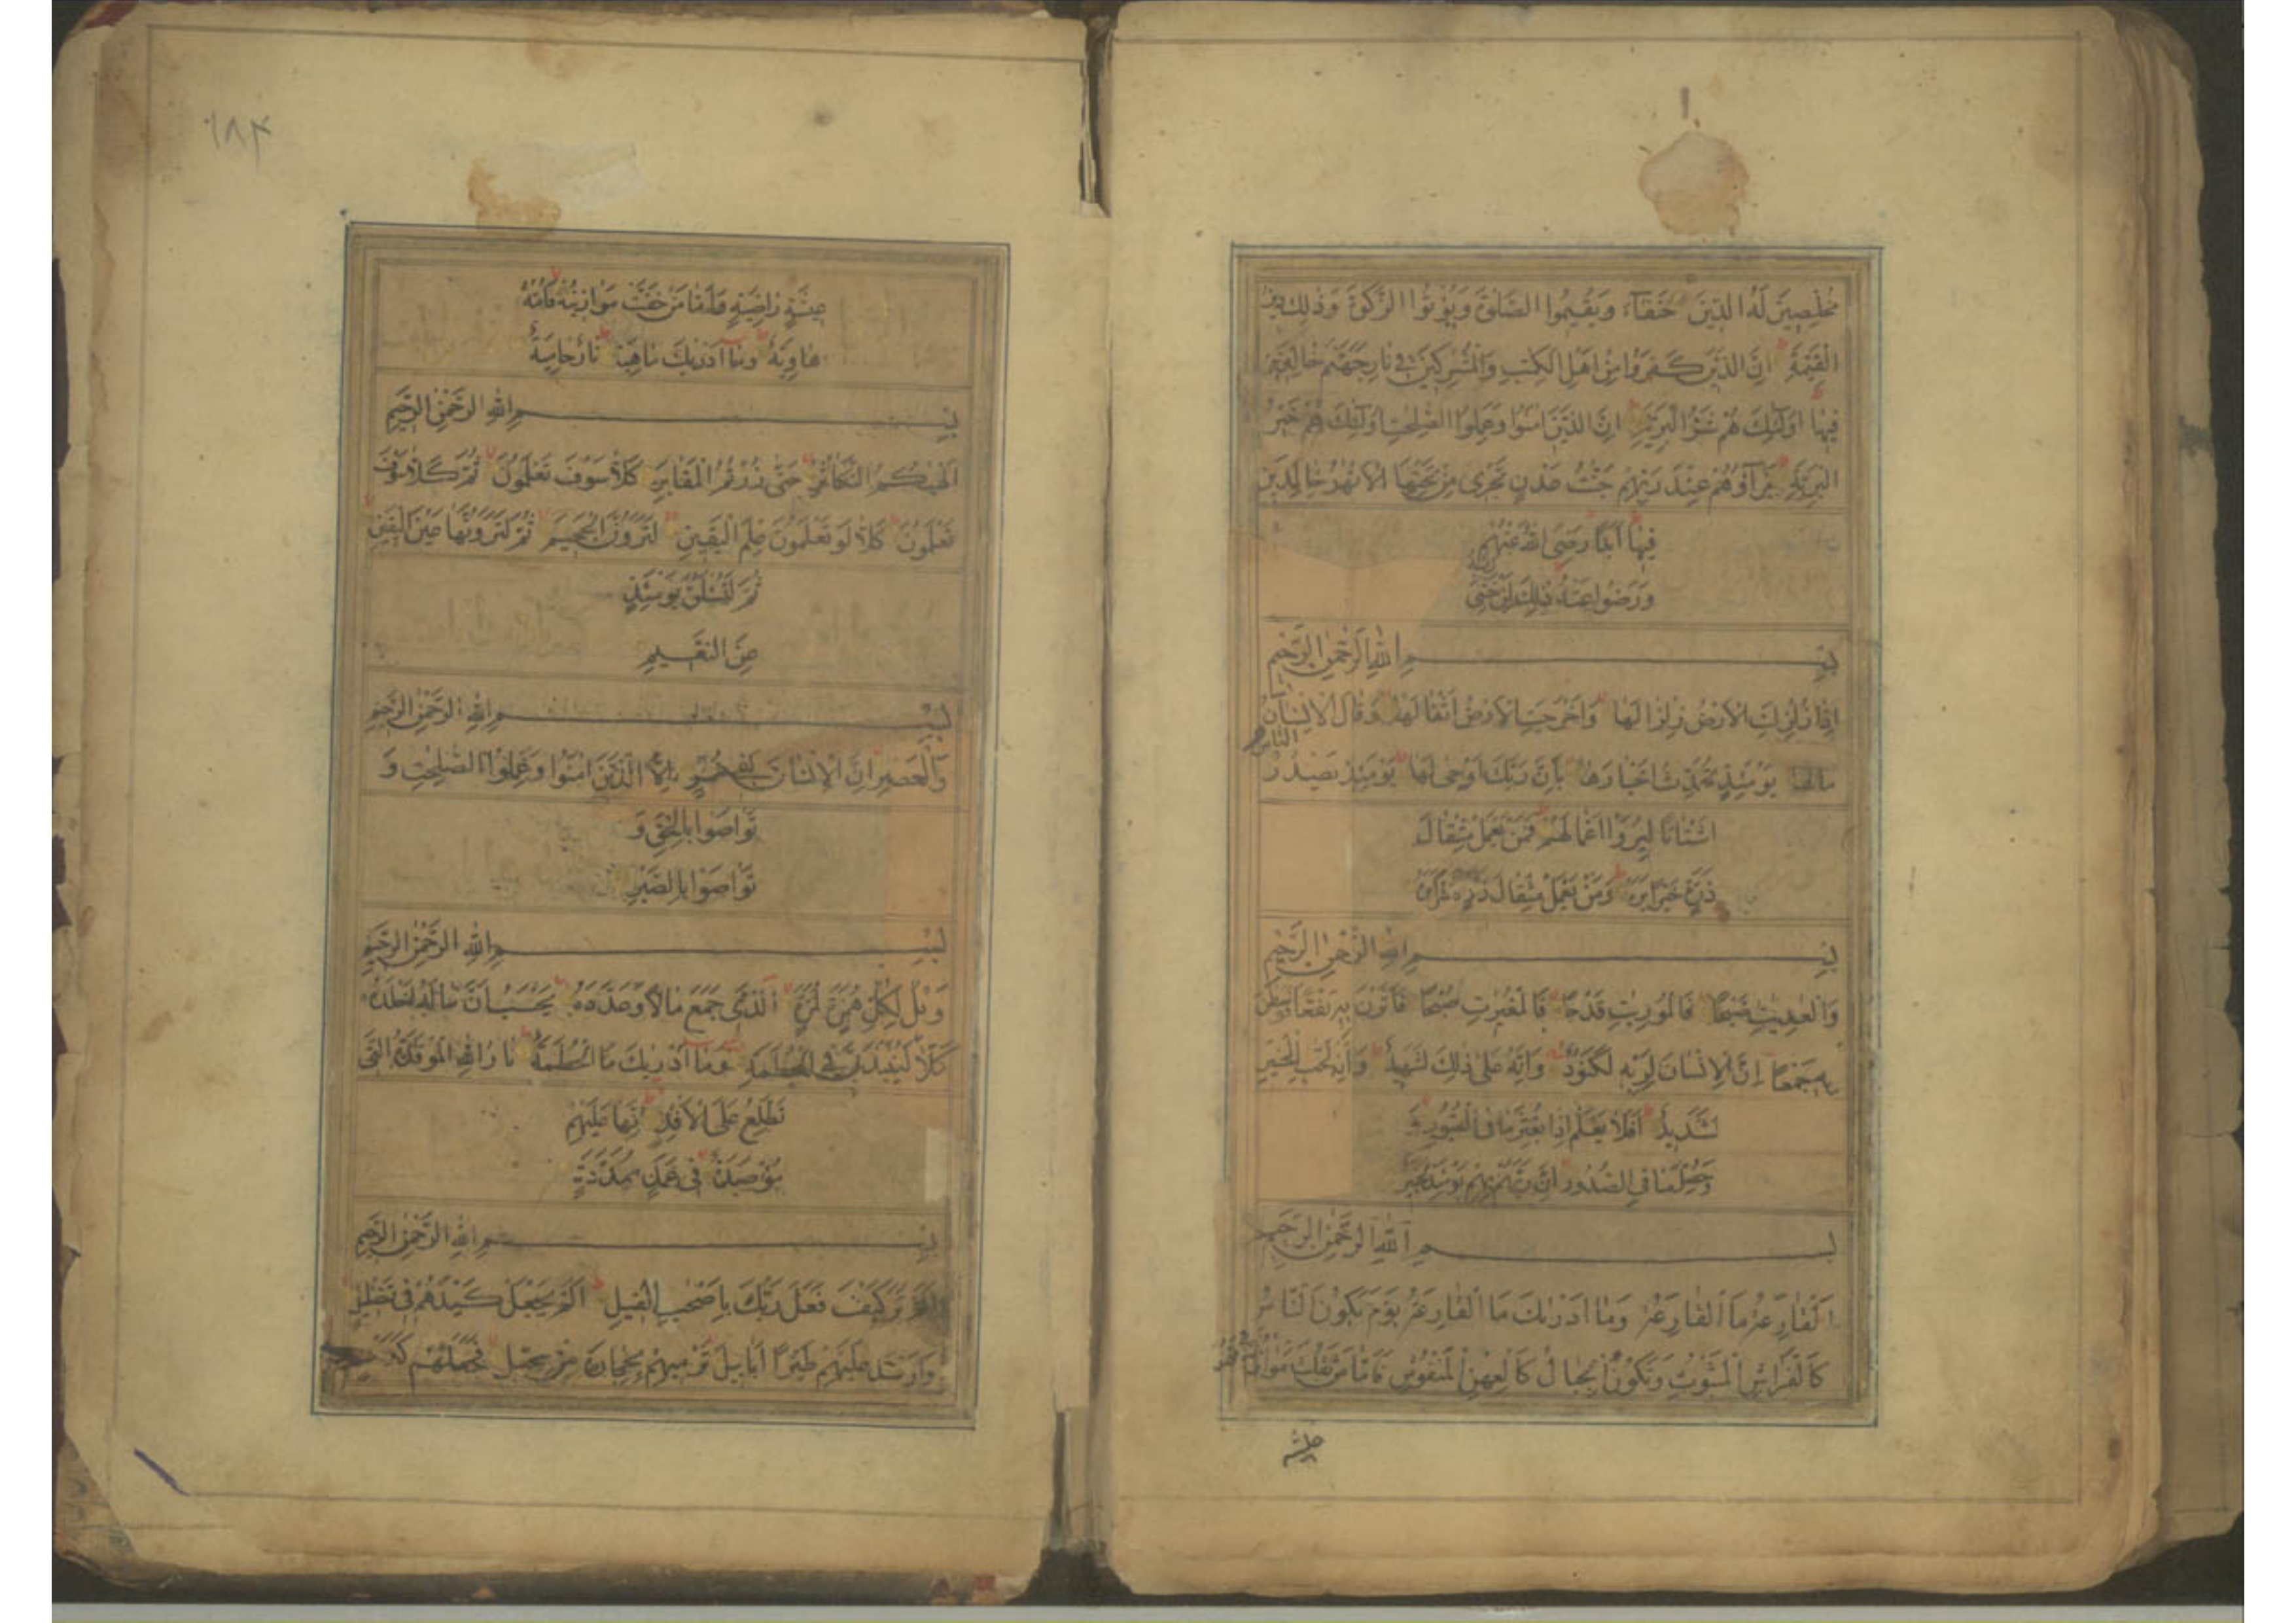 مُخْلِصِينَ لَهُ الدِّينَ حُنَفَآءَ وَيُقِيمُوا الصَّلوةَ وَيُؤْتُوا الزَّكوةَ وَذٰلِكَ دِينُ
الْقَيِّمَةِ اِنَّ الَّذِينَ كَفَرُوا مِنْ اَهْلِ الْكِتٰبِ وَالْمُشْرِكِينَ فِي نَارِ جَهَنَّمَ خَالِدِينَ
فِيهَا اُولٰٓئِكَ هُمْ شَرُّ الْبَرِيَّةِ اِنَّ الَّذِينَ اٰمَنُوا وَعَمِلُوا الصّٰلِحٰتِ اُولٰٓئِكَ هُمْ خَيْرُ
الْبَرِيَّةِ جَزَآؤُهُمْ عِنْدَ رَبِّهِمْ جَنّٰتُ عَدْنٍ تَجْرِي مِنْ تَحْتِهَا الْاَنْهٰرُ خَالِدِينَ
فِيهَا اَبَدًا رَضِيَ اللّٰهُ عَنْهُمْ
وَرَضُوا عَنْهُ ذٰلِكَ لِمَنْ خَشِيَ
رَبَّهُ
بِسْمِ اللّٰهِ الرَّحْمٰنِ الرَّحِيمِ
اِذَا زُلْزِلَتِ الْاَرْضُ زِلْزَالَهَا وَاَخْرَجَتِ الْاَرْضُ اَثْقَالَهَا وَقَالَ الْاِنْسَانُ
مَالَهَا يَوْمَئِذٍ تُحَدِّثُ اَخْبَارَهَا بِاَنَّ رَبَّكَ اَوْحٰى لَهَا يَوْمَئِذٍ يَصْدُرُ
النَّاسُ
اَشْتَاتًا لِيُرَوْا اَعْمَالَهُمْ فَمَنْ يَعْمَلْ مِثْقَالَ
ذَرَّةٍ خَيْرًا يَرَهُ وَمَنْ يَعْمَلْ مِثْقَالَ ذَرَّةٍ شَرًّا يَرَهُ
بِسْمِ اللّٰهِ الرَّحْمٰنِ الرَّحِيمِ
وَالْعٰدِيٰتِ ضَبْحًا فَالْمُورِيٰتِ قَدْحًا فَالْمُغِيرٰتِ صُبْحًا فَاَثَرْنَ بِهِ نَقْعًا فَوَسَطْنَ
بِهِ جَمْعًا اِنَّ الْاِنْسَانَ لِرَبِّهِ لَكَنُودٌ وَاِنَّهُ عَلٰى ذٰلِكَ لَشَهِيدٌ وَاِنَّهُ لِحُبِّ الْخَيْرِ
لَشَدِيدٌ اَفَلَا يَعْلَمُ اِذَا بُعْثِرَ مَا فِي الْقُبُورِ وَ
وَحُصِّلَ مَا فِي الصُّدُورِ اِنَّ رَبَّهُمْ بِهِمْ يَوْمَئِذٍ لَخَبِيرٌ
بِسْمِ اللّٰهِ الرَّحْمٰنِ الرَّحِيمِ
اَلْقَارِعَةُ مَا الْقَارِعَةُ وَمَا اَدْرٰىكَ مَا الْقَارِعَةُ يَوْمَ يَكُونُ النَّاسُ
كَالْفَرَاشِ الْمَبْثُوثِ وَتَكُونُ الْجِبَالُ كَالْعِهْنِ الْمَنْفُوشِ فَاَمَّا مَنْ ثَقُلَتْ مَوَازِينُهُ فَهُوَ فِي
عيشة
١٨٤
عِيشَةٍ رَاضِيَةٍ وَاَمَّا مَنْ خَفَّتْ مَوَازِينُهُ فَاُمُّهُ
هَاوِيَةٌ وَمَا اَدْرٰيكَ مَاهِيَهْ نَارٌ حَامِيَةٌ
بِسْمِ اللّٰهِ الرَّحْمٰنِ الرَّحِيمِ
اَلْهٰيكُمُ التَّكَاثُرُ حَتّٰى زُرْتُمُ الْمَقَابِرَ كَلَّا سَوْفَ تَعْلَمُونَ ثُمَّ كَلَّا سَوْفَ
تَعْلَمُونَ كَلَّا لَوْ تَعْلَمُونَ عِلْمَ الْيَقِينِ لَتَرَوُنَّ الْجَحِيمَ ثُمَّ لَتَرَوُنَّهَا عَيْنَ الْيَقِينِ
ثُمَّ لَتُسْئَلُنَّ يَوْمَئِذٍ
عَنِ النَّعِيمِ
بِسْمِ اللّٰهِ الرَّحْمٰنِ الرَّحِيمِ
وَالْعَصْرِ اِنَّ الْاِنْسَانَ لَفِي خُسْرٍ اِلَّا الَّذِينَ اٰمَنُوا وَعَمِلُوا الصّٰلِحٰتِ وَ
تَوَاصَوْا بِالْحَقِّ وَ
تَوَاصَوْا بِالصَّبْرِ
بِسْمِ اللّٰهِ الرَّحْمٰنِ الرَّحِيمِ
وَيْلٌ لِكُلِّ هُمَزَةٍ لُمَزَةٍ الَّذِي جَمَعَ مَالًا وَعَدَّدَهُ يَحْسَبُ اَنَّ مَالَهُ اَخْلَدَهُ
كَلَّا لَيُنْبَذَنَّ فِي الْحُطَمَةِ وَمَا اَدْرٰيكَ مَا الْحُطَمَةُ نَارُ اللّٰهِ الْمُوقَدَةُ الَّتِي
تَطَّلِعُ عَلَى الْاَفْئِدَةِ اِنَّهَا عَلَيْهِمْ
مُؤْصَدَةٌ فِي عَمَدٍ مُمَدَّدَةٍ
بِسْمِ اللّٰهِ الرَّحْمٰنِ الرَّحِيمِ
اَلَمْ تَرَ كَيْفَ فَعَلَ رَبُّكَ بِاَصْحٰبِ الْفِيلِ اَلَمْ يَجْعَلْ كَيْدَهُمْ فِي تَضْلِيلٍ
وَاَرْسَلَ عَلَيْهِمْ طَيْرًا اَبَابِيلَ تَرْمِيهِمْ بِحِجَارَةٍ مِنْ سِجِّيلٍ فَجَعَلَهُمْ